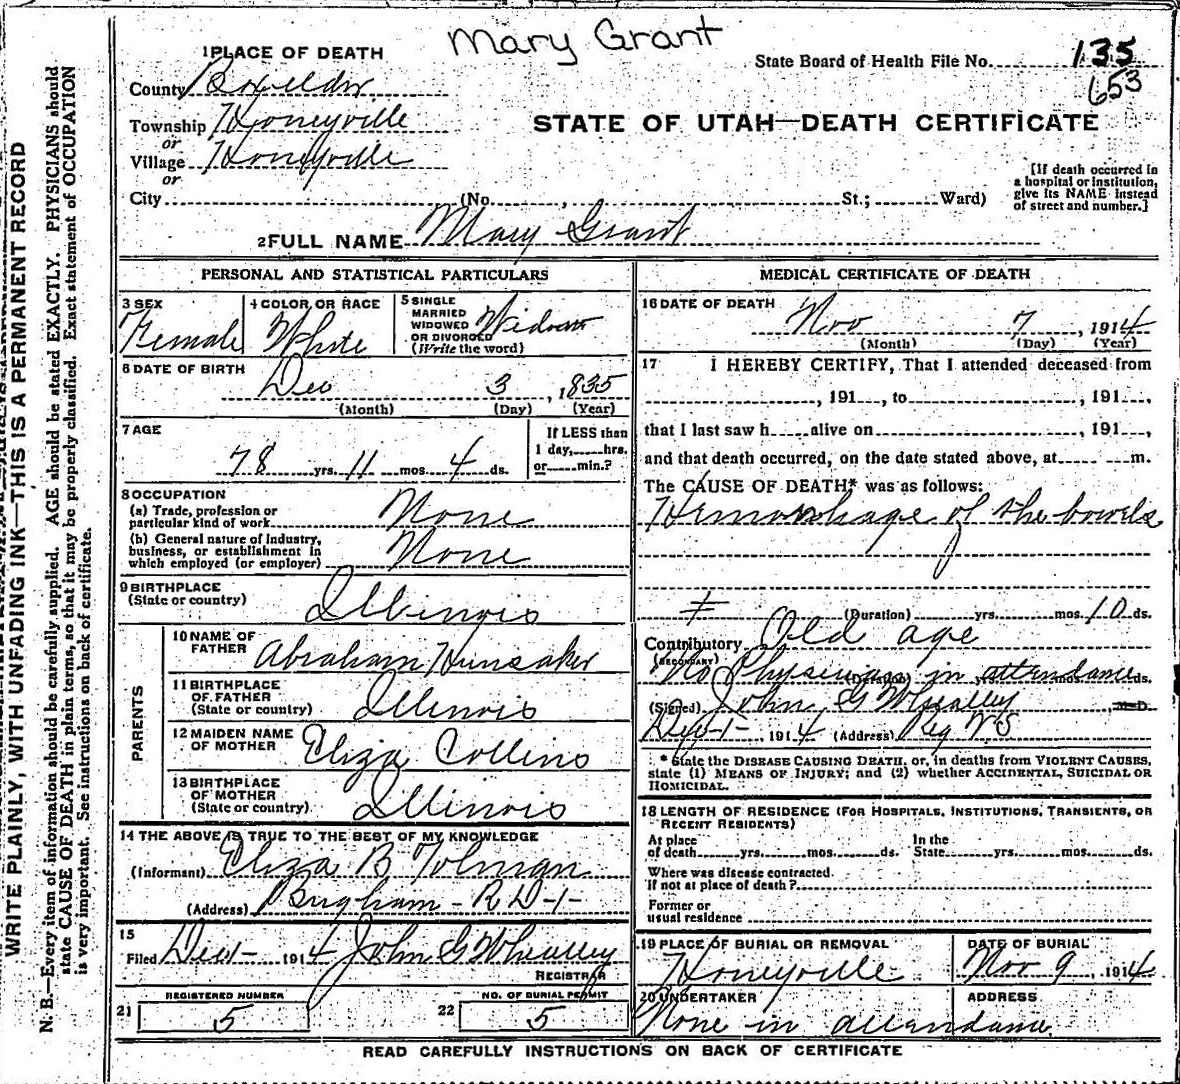 Mary Grant
1 PLACE OF DEATH
State Board of Health File No. 135
653
County Boxelder
Township Honeyville
or
Village Honeyville
or
STATE OF UTAH—DEATH CERTIFICATE
City (No. , St.; Ward)
[If death occurred in
a hospital or institution,
give its NAME instead
of street and number.]
2 FULL NAME Mary Grant
PERSONAL AND STATISTICAL PARTICULARS
3 SEX
Female
4 COLOR OR RACE
White
5 SINGLE
MARRIED
WIDOWED
OR DIVORCED
(Write the word)
Widow
6 DATE OF BIRTH
Dec 3, 1835
(Month) (Day) (Year)
7 AGE
78 yrs. 11 mos. 4 ds.
If LESS than
1 day, hrs.
or min.?
8 OCCUPATION
(a) Trade, profession or
particular kind of work None
(b) General nature of industry,
business, or establishment in
which employed (or employer) None
9 BIRTHPLACE
(State or country) Illinois
PARENTS
10 NAME OF
FATHER Abraham Hunsaker
11 BIRTHPLACE
OF FATHER
(State or country) Illinois
12 MAIDEN NAME
OF MOTHER Eliza Collins
13 BIRTHPLACE
OF MOTHER
(State or country) Illinois
14 THE ABOVE IS TRUE TO THE BEST OF MY KNOWLEDGE
(Informant) Eliza B Tolman
(Address) Brigham - R D -1-
15
Filed 1914 John G Wheatley
REGISTRAR
REGISTERED NUMBER
21 5
NO. OF BURIAL PERMIT
22 5
MEDICAL CERTIFICATE OF DEATH
16 DATE OF DEATH
Nov 7, 1914
(Month) (Day) (Year)
17 I HEREBY CERTIFY, That I attended deceased from
, 191 , to , 191 ,
that I last saw h alive on , 191 ,
and that death occurred, on the date stated above, at m.
The CAUSE OF DEATH* was as follows:
Hemorrhage of the bowels
(Duration) yrs. mos. 10 ds.
Contributory Old age
(SECONDARY)
No Physician in attendance ds.
(Signed) John G Wheatley M.D.
1914 (Address) Reg V S
* State the DISEASE CAUSING DEATH, or, in deaths from VIOLENT CAUSES,
state (1) MEANS OF INJURY; and (2) whether ACCIDENTAL, SUICIDAL OR
HOMICIDAL.
18 LENGTH OF RESIDENCE (FOR HOSPITALS, INSTITUTIONS, TRANSIENTS, OR
RECENT RESIDENTS)
At place
of death yrs. mos. ds.
In the
State yrs. mos. ds.
Where was disease contracted
If not at place of death?
Former or
usual residence
19 PLACE OF BURIAL OR REMOVAL
Honeyville
DATE OF BURIAL
Nov 9, 1914
20 UNDERTAKER
ADDRESS
None in attendance
READ CAREFULLY INSTRUCTIONS ON BACK OF CERTIFICATE
WRITE PLAINLY, WITH UNFADING INK—THIS IS A PERMANENT RECORD
N. B.—Every item of information should be carefully supplied. AGE should be stated EXACTLY. PHYSICIANS should
state CAUSE OF DEATH in plain terms, so that it may be properly classified. Exact statement of OCCUPATION
is very important. See instructions on back of certificate.